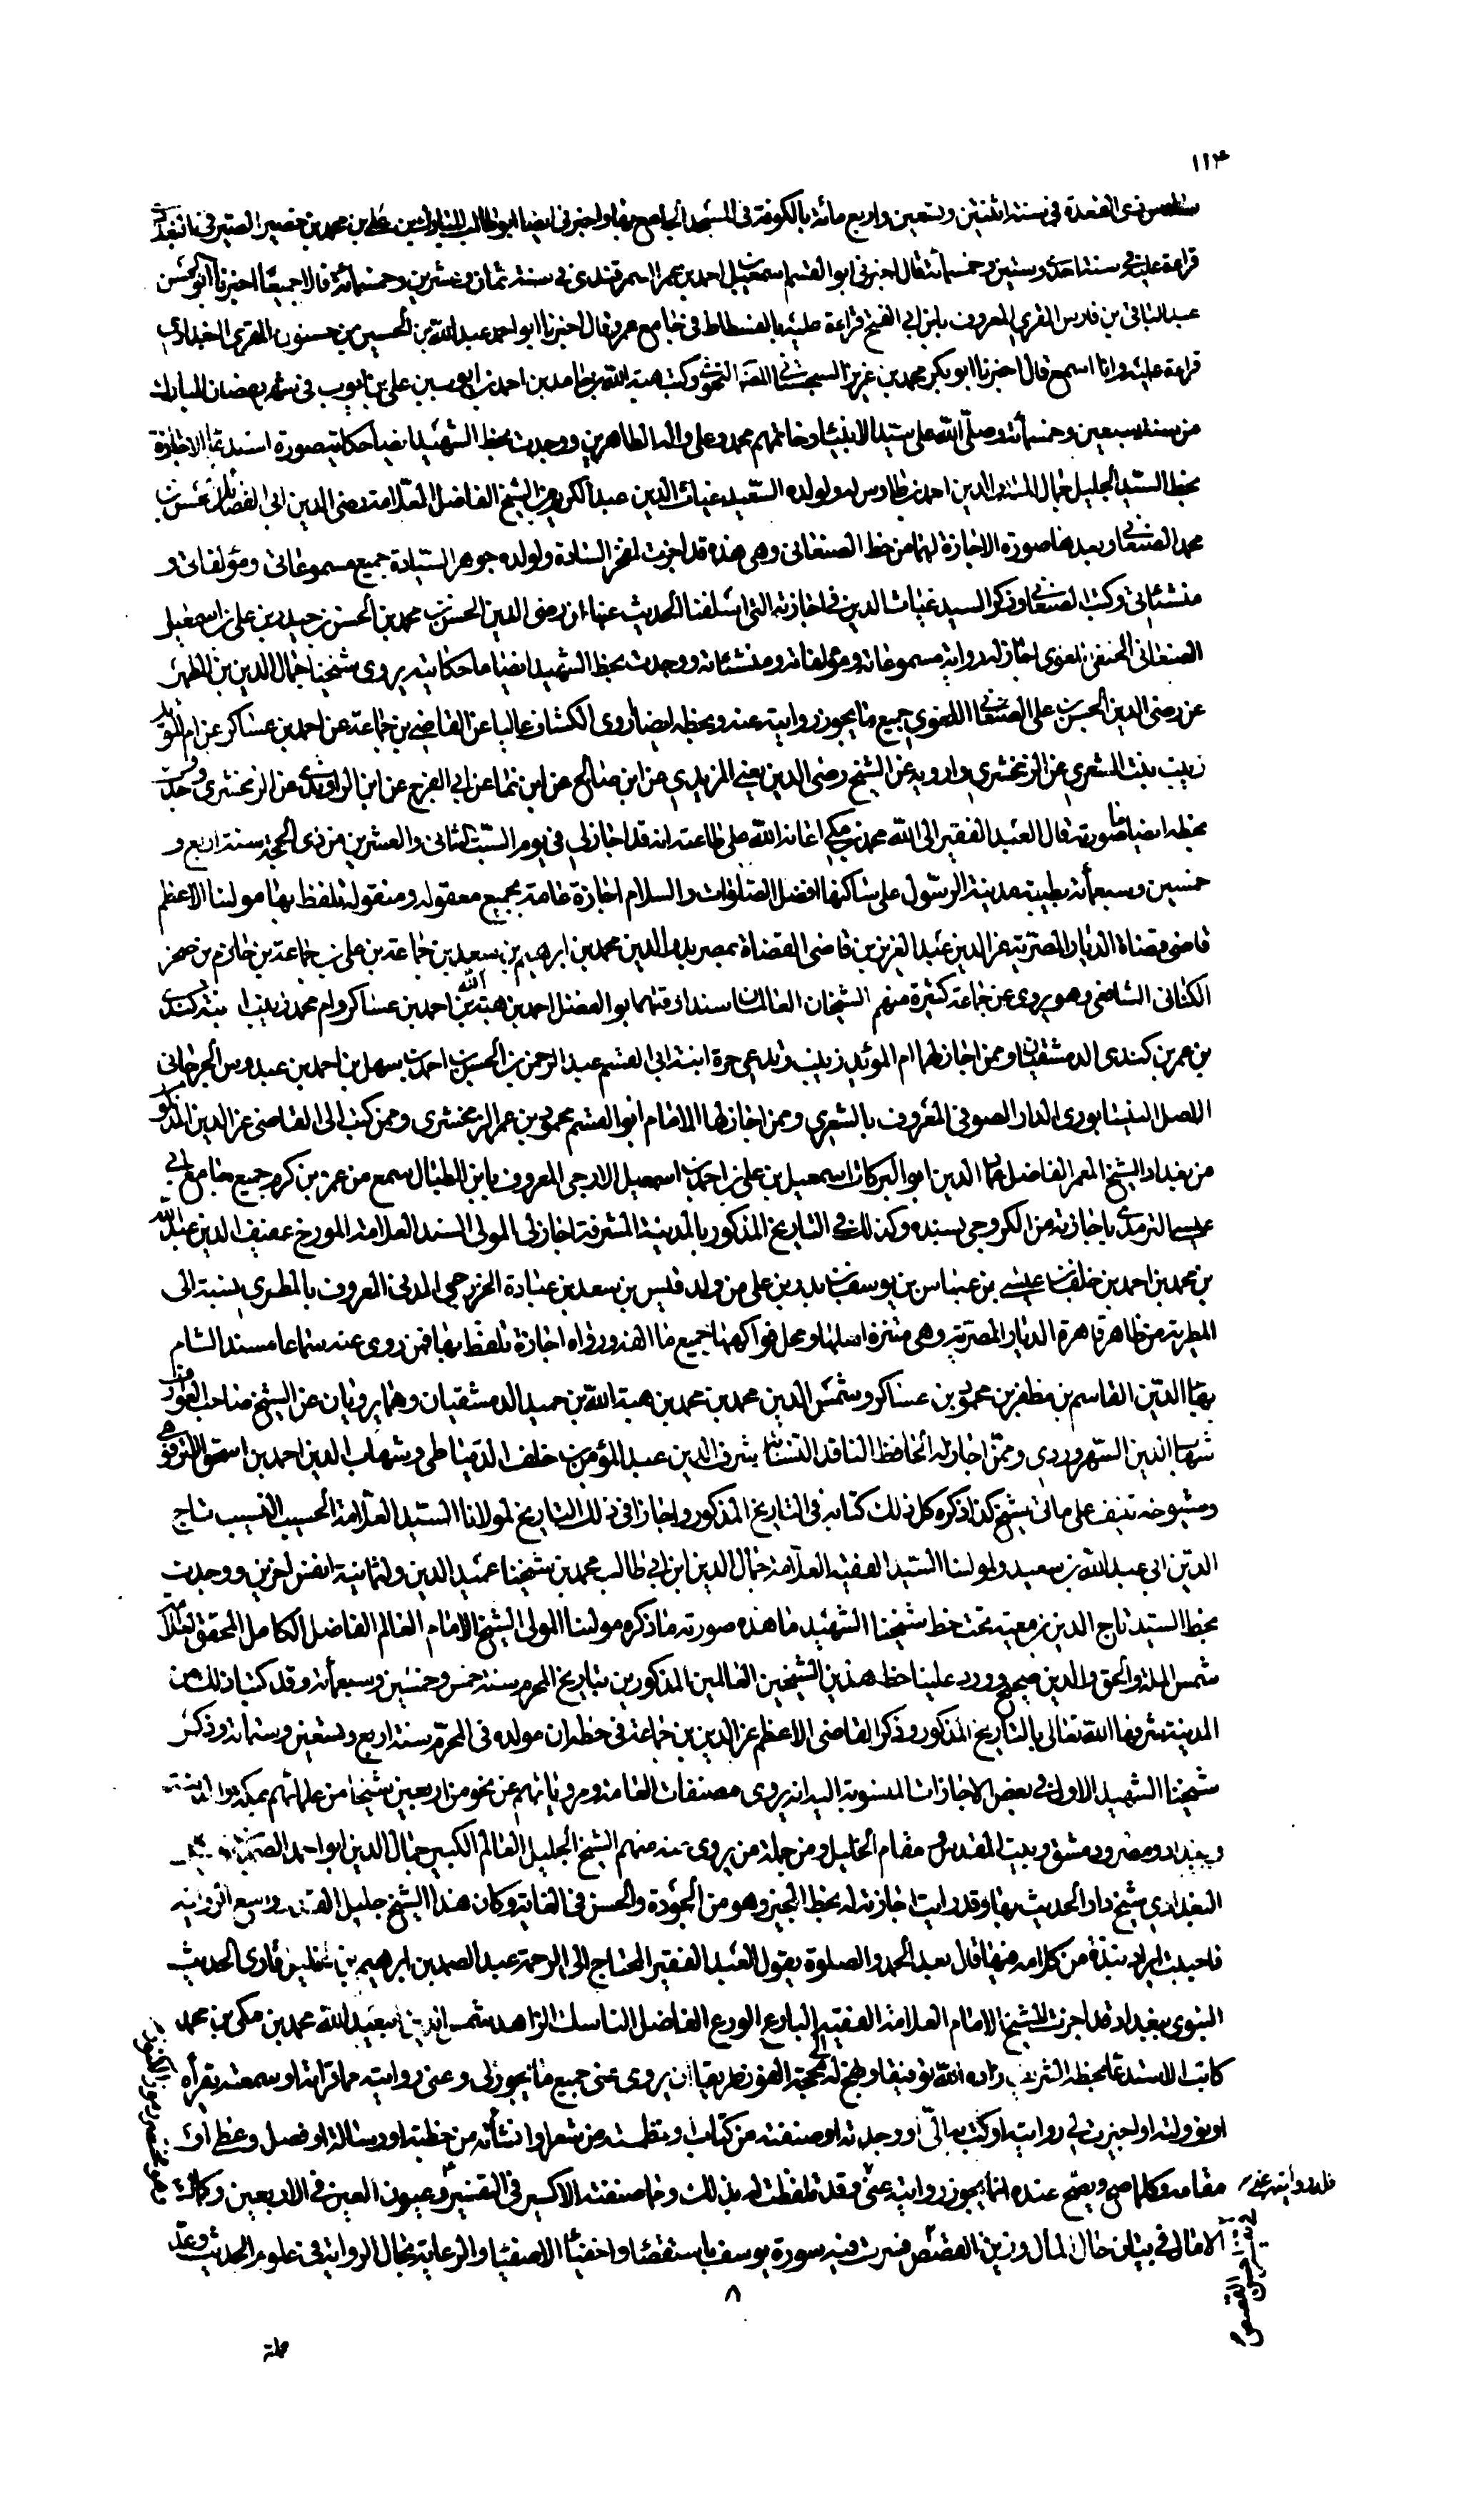 ١١٣
سادس ذى القعدة فى سنة اثنتين وتسعين واربع مائة بالكوفة فى المسجد الجامع بها واخبرنى ايضا ابو طالب المبارك بن على بن محمد بن خضير الصيرفى ببغداد
قراءة عليه فى سنة احدى وستين وخمسمائة قال اخبرنى ابو القسم اسمعيل بن احمد بن عمر السمرقندى فى سنة ثمان وعشرين وخمسمائة قالا جميعا اخبرنا ابو الحسن
عبد الباقى بن فارس المقرى المعروف بابن ابى الفتح قراءة عليه بالفسطاط فى جامع عمرو قال اخبرنا ابو احمد عبد الله بن الحسين بن حسنون المقرى البغدادى
قراءة عليه وانا اسمع قال اخبرنا ابو بكر محمد بن عزيز السجستانى النحوى وكتب هبة الله بن حامد بن احمد بن ايوب بن على بن ايوب فى شهر رمضان المبارك
من سنة سبعين وخمسمائة وصلى الله على سيد الانبياء وخاتمهم محمد وعلى واله الطاهرين ووجدت بخط الشهيد ايضا حكاية صورة استدعاء الاجازة
بخط السيد الجليل جمال الدين احمد بن طاوس له ولولده السعيد غياث الدين عبد الكريم من الشيخ الفاضل العلامة رضى الدين ابى الفضائل الحسن بن
محمد الصنعانى وبعدها صورة الاجازة لهما من خط الصنعانى وهى هذه قد اجزت لفخر السادة ولولده جوهر السيادة جميع مسموعاتى ومؤلفاتى و
منشئاتى وكتب الصنعانى وذكر السيد غياث الدين فى اجازته التى اسلفنا الحديث عنها ان رضى الدين الحسن بن محمد بن الحسن بن حيدر بن على بن اسمعيل
الصنعانى الحنفى اللغوى اجاز له رواية مسموعاته ومؤلفاته ومنشئاته ووجدت بخط الشهيد ايضا ما حكايته يروى شيخنا جمال الدين بن المطهر
عن رضى الدين الحسن بن على الصنعانى اللغوى جميع ما يجوز روايته عنه وبخطه ايضا اروى الكشاف عاليا عن القاضى بن جماعة عن احمد بن عساكر عن ام المؤيد
زينب بنت الشعرى عن الزمخشرى وارويه عن الشيخ رضى الدين يعنى المزيدى عن ابن صالح عن ابن نما عن ابى الفرج عن ابن الراوندى عن الزمخشرى ووجدت
بخطه ايضا ما صورته قال العبد الفقير الى الله محمد بن مكى اعانه الله على طاعته انه قد اجاز لى فى يوم السبت الثانى والعشرين من ذى الحجة سنة اربع و
خمسين وسبعمائة بطيبة مدينة الرسول على ساكنها افضل الصلوات والسلام اجازة عامة بجميع معقوله ومنقوله تلفظ بها مولينا الاعظم
قاضى قضاة الديار المصرية عز الدين عبد العزيز بن قاضى القضاة بمصر بدر الدين محمد بن ابرهيم بن سعد الله بن جماعة بن على بن جماعة بن حازم بن صخر
الكنانى الشافعى وهو يروى عن جماعة كثيرة منهم الشيخان العالمان اسنادا قتهما ابو الفضل احمد بن هبة الله بن احمد بن عساكر وام محمد زينب ابنة كندى
بن عمر بن كندى الدمشقيان وممن اجاز لهما ام المؤيد زينب وتدعى حرة ابنة ابى القسم عبد الرحمن بن الحسن بن احمد بن سهل بن احمد بن عبدوس الجرجانى
الاصل النيسابورى الدار الصوفى المعروف بالشعرى وممن اجاز لها الامام ابو القسم محمود بن عمر الزمخشرى وممن كتب الى القاضى عز الدين المذكور
من بغداد الشيخ المعمر الفاضل عماد الدين ابو البركات اسمعيل بن على بن احمد بن اسمعيل الازجى المعروف بابن الطبال سمع من عمر بن كرم جميع جامع ابى
عيسى الترمذى باجازته من الكروخى بسنده وكذلك فى التاريخ المذكور بالمدينة المشرفة اجاز لى المولى السند العلامة المورخ عفيف الدين عبد الله
بن محمد بن احمد بن خلف بن عيسى بن عباس بن يوسف بن بدر بن على من ولد قيس بن سعد بن عبادة الخزرجى المدنى المعروف بالمطرى نسبة الى
المطرية من ظاهر قاهرة الديار المصرية وهى متنزه اهلها ومحل فواكهها جميع ما الفه ورواه اجازة تلفظ بها فممن روى عنه سماعا مسند الشام
بهاء الدين القاسم بن مظفر بن محمود بن عساكر وشمس الدين محمد بن محمد بن هبة الله بن حميد الدمشقيان وهما يرويان عن الشيخ صاحب العوارف
شهاب الدين السهروردى وممن اجاز له الحافظ الناقد النسابة شرف الدين عبد المؤمن بن خلف الدمياطى وشهاب الدين احمد بن اسحق الابرقوهى
ومشيوخه تنيف على مائى شيخ كذا ذكره كل ذلك كتابه فى التاريخ المذكور واجازا فى ذلك التاريخ لمولانا السيد العلامة الحسيب النسيب تاج
الدين ابى عبد الله بن سعيد ولمولينا السيد الفقيه العلامة جمال الدين ابن ابى طالب محمد بن شيخنا عميد الدين ولثمانية انفس اخرين ووجدت
بخط السيد تاج الدين بن معية تحت خط شيخنا الشهيد ما هذه صورته ما ذكره مولينا المولى الشيخ الامام العالم الفاضل الكامل المحقق العلامة
شمس الملة والحق والدين صحيح وورد علينا خط هذين الشيخين العالمين المذكورين بتاريخ المحرم سنة خمس وخمسين وسبعمائة وقد كتبا ذلك من
المدينة شرفها الله تعالى بالتاريخ المذكور وذكر القاضى الاعظم عز الدين بن جماعة فى خطه ان مولده فى المحرم سنة اربع وتسعين وستمائة وذكر
شيخنا الشهيد الاول فى بعض الاجازات المنسوبة اليه انه يروى مصنفات العامة ومروياتهم عن نحو من اربعين شيخا من علمائهم بمكة والمدينة
وبغداد ومصر ودمشق وبيت المقدس ومقام الخليل ومن جملة من يروى عنه منهم الشيخ الجليل العالم الكبير جمال الدين ابو احمد عبد الصمد
البغدادى شيخ دار الحديث بها وقد رايت اجازته له بخط المجيز وهو من الجودة والحسن فى الغاية وكان هذا الشيخ جليل القدر وسيع الرواية
فاحببت ايراد نبذة من كلامه فيها قال بعد الحمد والصلوة يقول العبد الفقير المحتاج الى الرحمة عبد الصمد بن ابرهيم بن الخليل قارى الحديث
النبوى ببغداد قد اجزت للشيخ الامام العلامة الفقيه البارع الورع الفاضل الناسك الزاهد شمس الدين ابى عبد الله محمد بن مكى بن محمد
كاتب الاستدعاء بخطه الشريف زاده الله توفيقا ونهج له الى محجة الفوز طريقا ان يروى عنى جميع ما يجوز لى وعنى روايته مما قراته او سمعته يقرأه
او نوولته او اجيزت لى روايته او كتب به الى او وجدته او صنفته من كتاب او نظمته من شعر او انشأته من خطبة او رسالة او فصل وعظ او
مقامة وكلما صح ويصح عنده انه مما يجوز روايته عنى فقد تلفظت له بذلك ومما صنفته الاكسير فى التفسير وعيون العين فى الاربعين وكتاب
فله روايته عنى
الامال فى بيان حال المال وزين القصص فسرت فيه سورة يوسف باستقصاء واخفياء الاصفياء والرعاية بمجال الرواية فى علوم الحديث وعد
٨
جملة